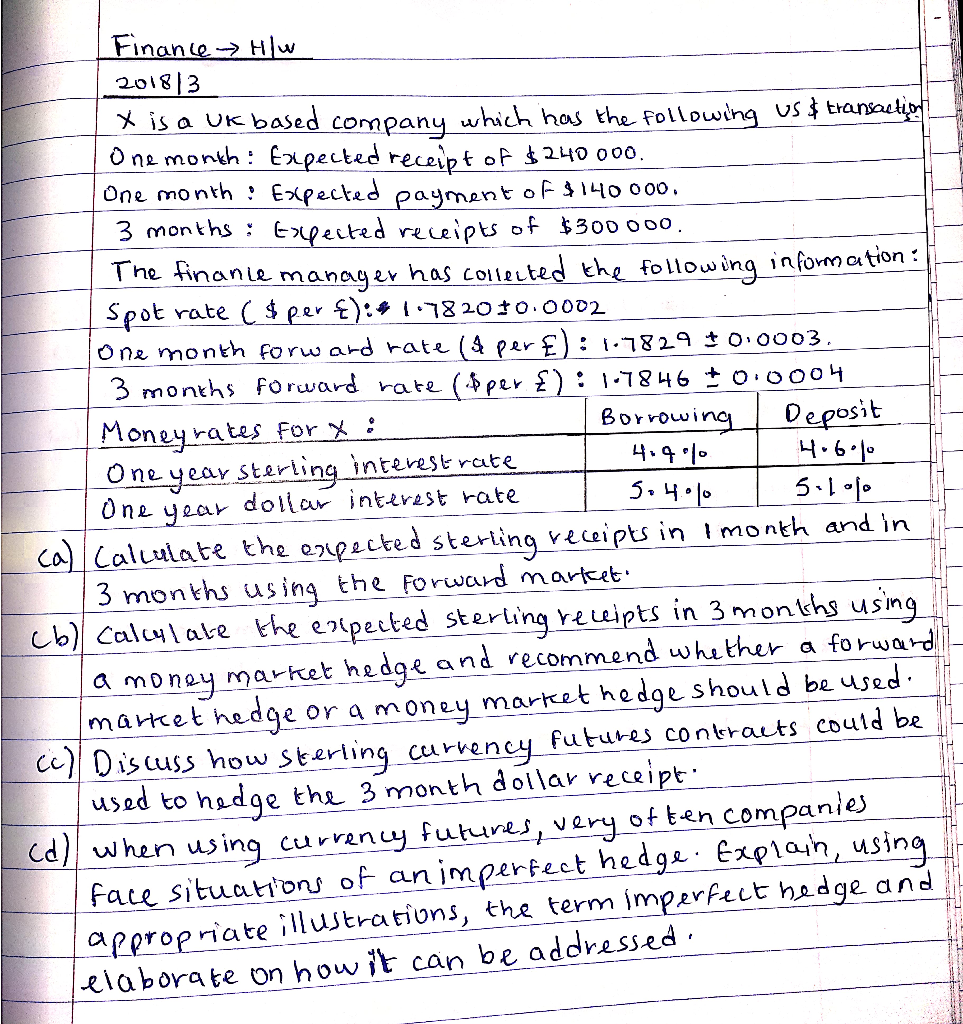 Finance → H/w
2018/3
X is a UK based company which has the following US $ transaction
One month : Expected receipt of $240 000.
One month : Expected payment of $140 000.
3 months : Expected receipts of $300 000.
The finance manager has collected the following information :
Spot rate ($ per £) : 1.7820 ± 0.0002
One month forward rate ($ per £) : 1.7829 ± 0.0003.
3 months forward rate ($per £) : 1.7846 ± 0.0004
Money rates for X : Borrowing Deposit
One year sterling interest rate 4.9% 4.6%
One year dollar interest rate 5.4% 5.1%
(a) Calculate the expected sterling receipts in 1 month and in
3 months using the forward market.
(b) Calculate the expected sterling receipts in 3 months using
a money market hedge and recommend whether a forward
market hedge or a money market hedge should be used.
(c) Discuss how sterling currency futures contracts could be
used to hedge the 3 month dollar receipt.
(d) When using currency futures, very often companies
face situations of an imperfect hedge. Explain, using
appropriate illustrations, the term imperfect hedge and
elaborate on how it can be addressed.